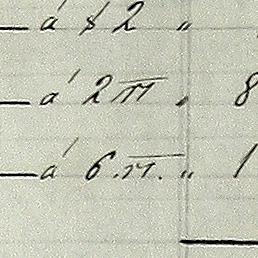 — á $ 2 „
— á 2 m „ 8
— á 6 . m . „ 1